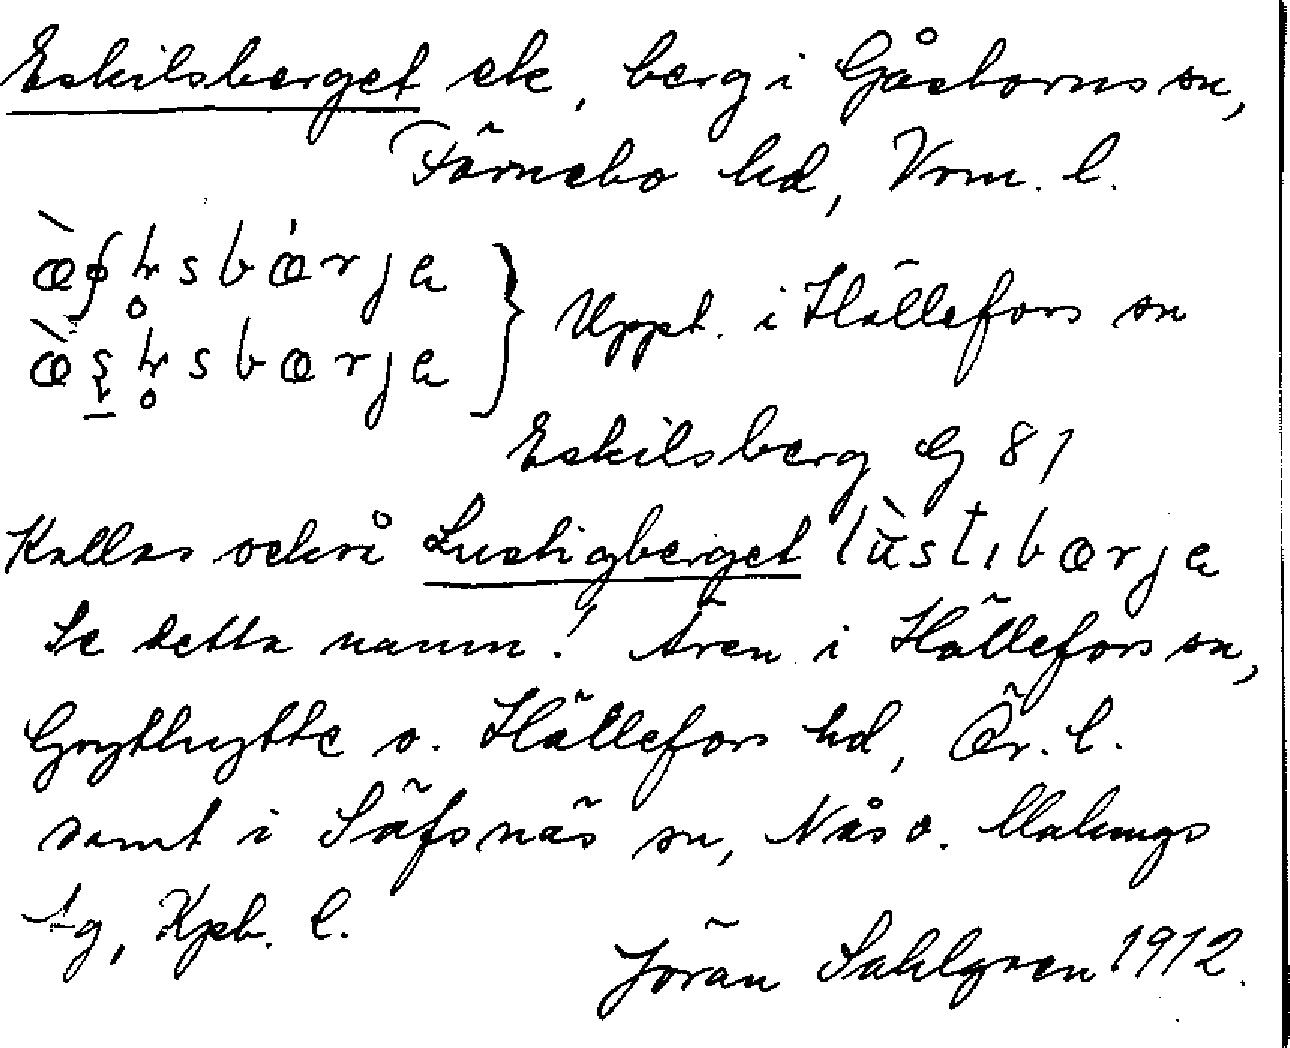 Eskilsberget ek, berg i Gåsborns sn,
Färnebo hd, Vrm. l.
Uppt. i Hällefors sn
Eskilsberg G 81
Kallas också Lustigberget
Se detta namn! Även i Hällefors sn,
Grythytte o. Hällefors hd, Ör. l.
samt i Säfsnäs sn, Nås o. Malungs
tg, Kpb. l.
Jöran Sahlgren 1912.